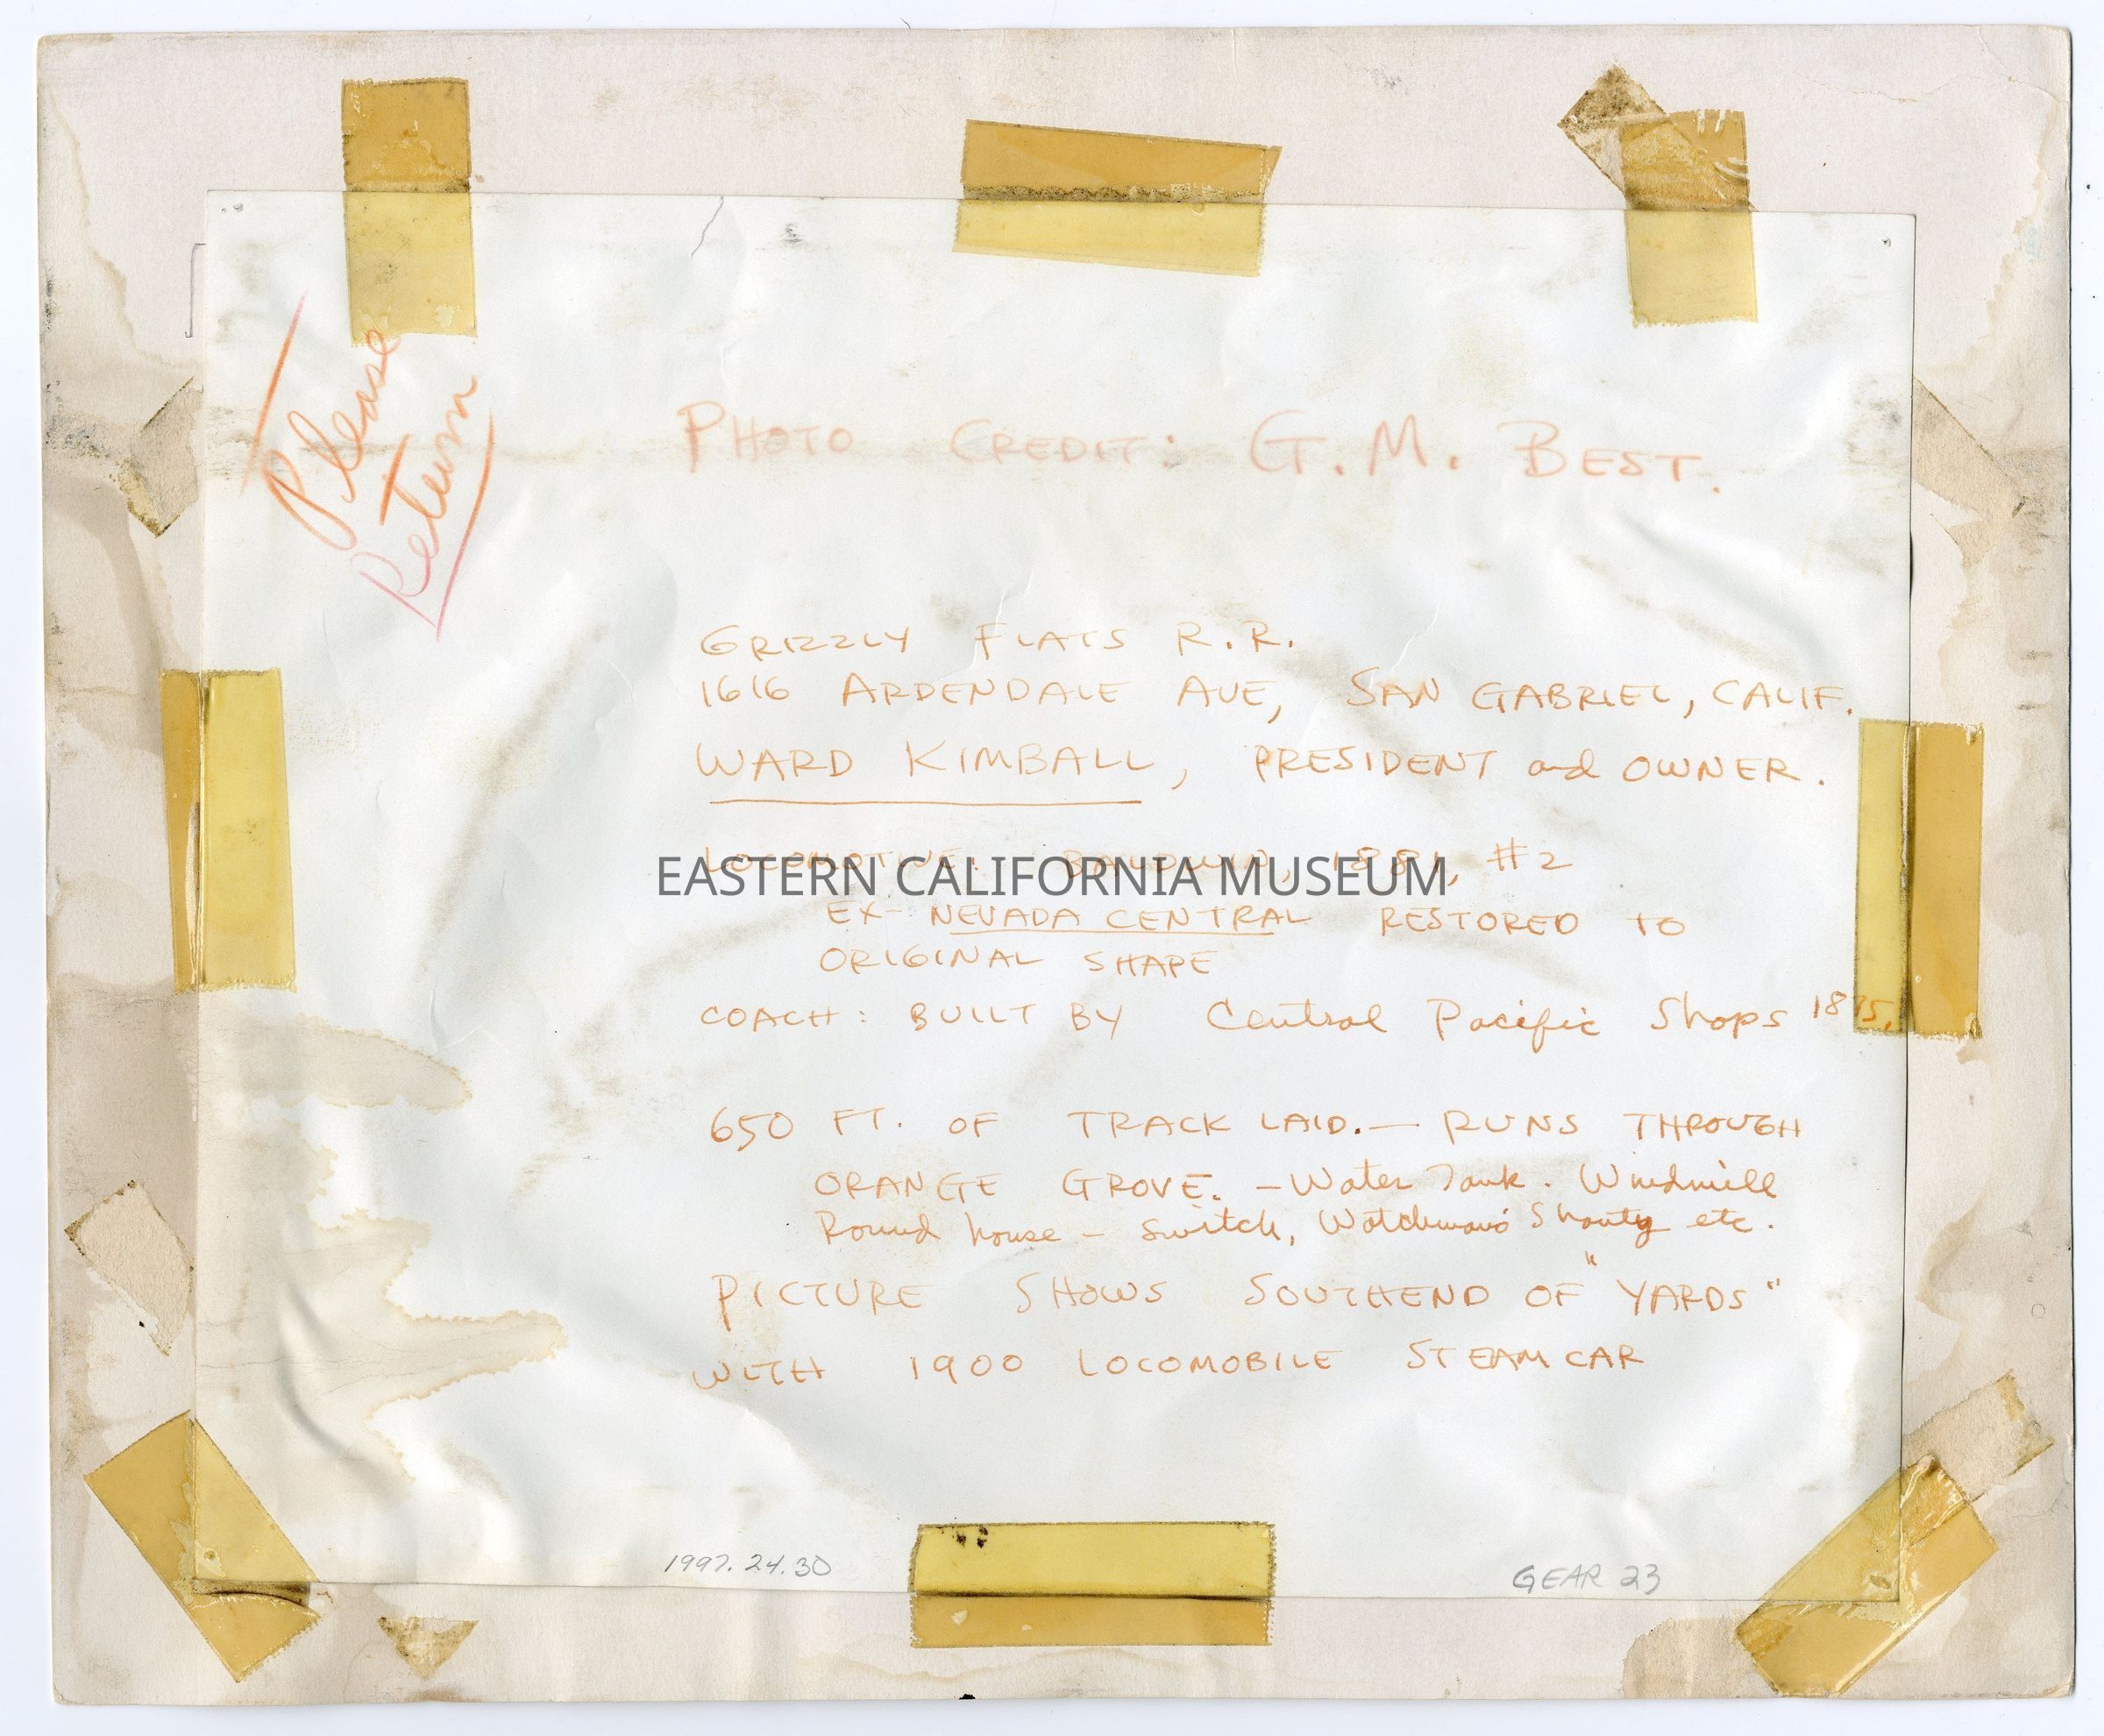 Please
Return
PHOTO CREDIT: G.M. BEST.
GRIZZLY FLATS R.R.
1616 ARDENDALE AVE, SAN GABRIEL, CALIF.
WARD KIMBALL, PRESIDENT and OWNER.
LOCOMOTIVE: BALDWIN, 1881, #2
EASTERN CALIFORNIA MUSEUM
EX- NEVADA CENTRAL RESTORED TO
ORIGINAL SHAPE
COACH: BUILT BY Central Pacific Shops 1875.
650 FT. OF TRACK LAID. — RUNS THROUGH
ORANGE GROVE. - Water Tank. Windmill
Round house - switch, Watchman's Shanty etc.
PICTURE SHOWS SOUTHEND OF "YARDS"
WITH 1900 LOCOMOBILE STEAM CAR
1997.24.30 GEAR 23